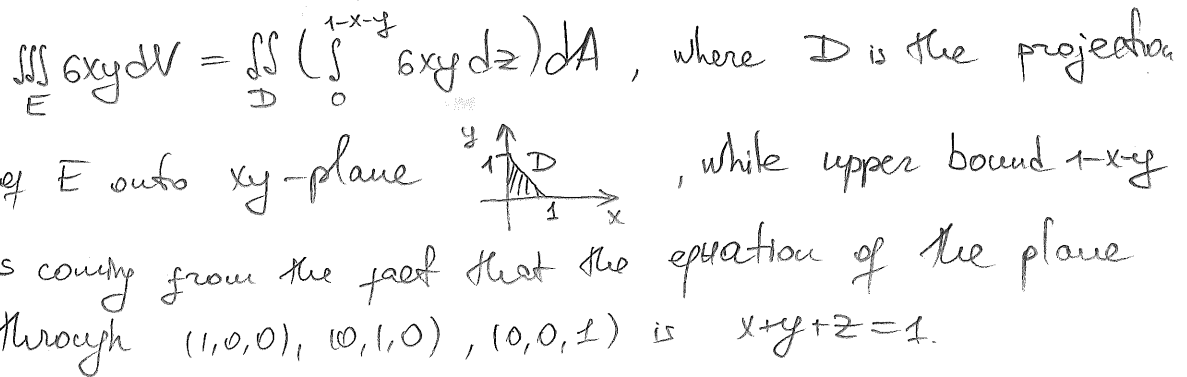 ∭_E 6xy dV = ∬_D (∫_0^{1-x-y} 6xy dz) dA , where D is the projection
of E onto xy-plane y 1 D 1 x , while upper bound 1-x-y
s coming from the fact that the equation of the plane
through (1,0,0), (0,1,0), (0,0,1) is x+y+z=1.